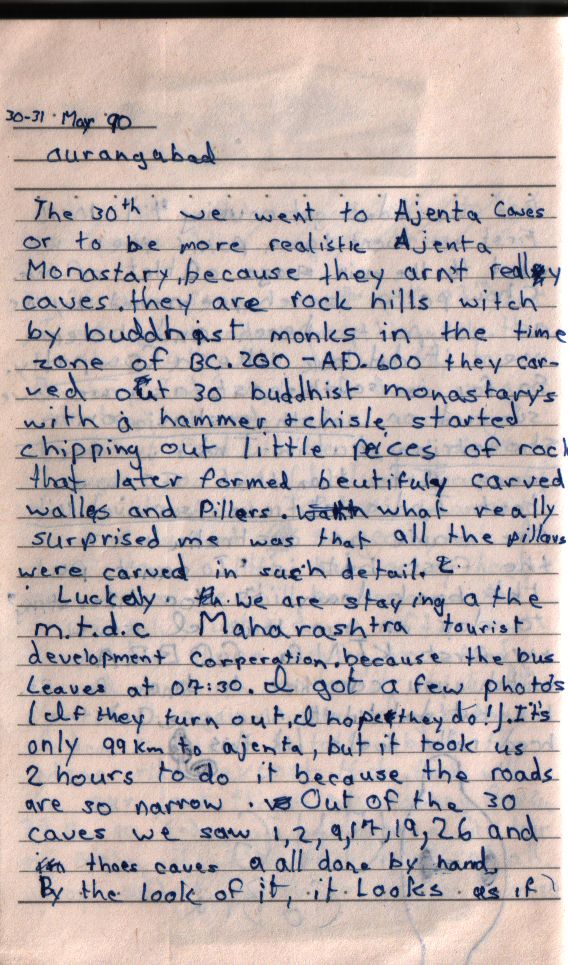 30-31 · May '90
aurangabad
The 30th we went to Ajenta Caves
or to be more realistic Ajenta
Monastary, because they arn't really
caves. they are rock hills witch
by buddhist monks in the time
zone of BC.200 - AD.600 they car-
ved out 30 buddhist monastary's
with a hammer & chisle started
chipping out little peices of rock
that later formed beutifuly carved
walles and Pillers. what really
surprised me was that all the pillars
were carved in such detail.
Luckely we are staying a the
m.t.d.c Maharashtra tourist
development Corperation. because the bus
Leaves at 07:30. I got a few photo's
(If they turn out, I hope they do!). It's
only 99 km to ajenta, but it took us
2 hours to do it because the roads
are so narrow. Out of the 30
caves we saw 1,2,9,17,19,26 and
in thoes caves a all done by hand.
By the look of it, it Looks as if